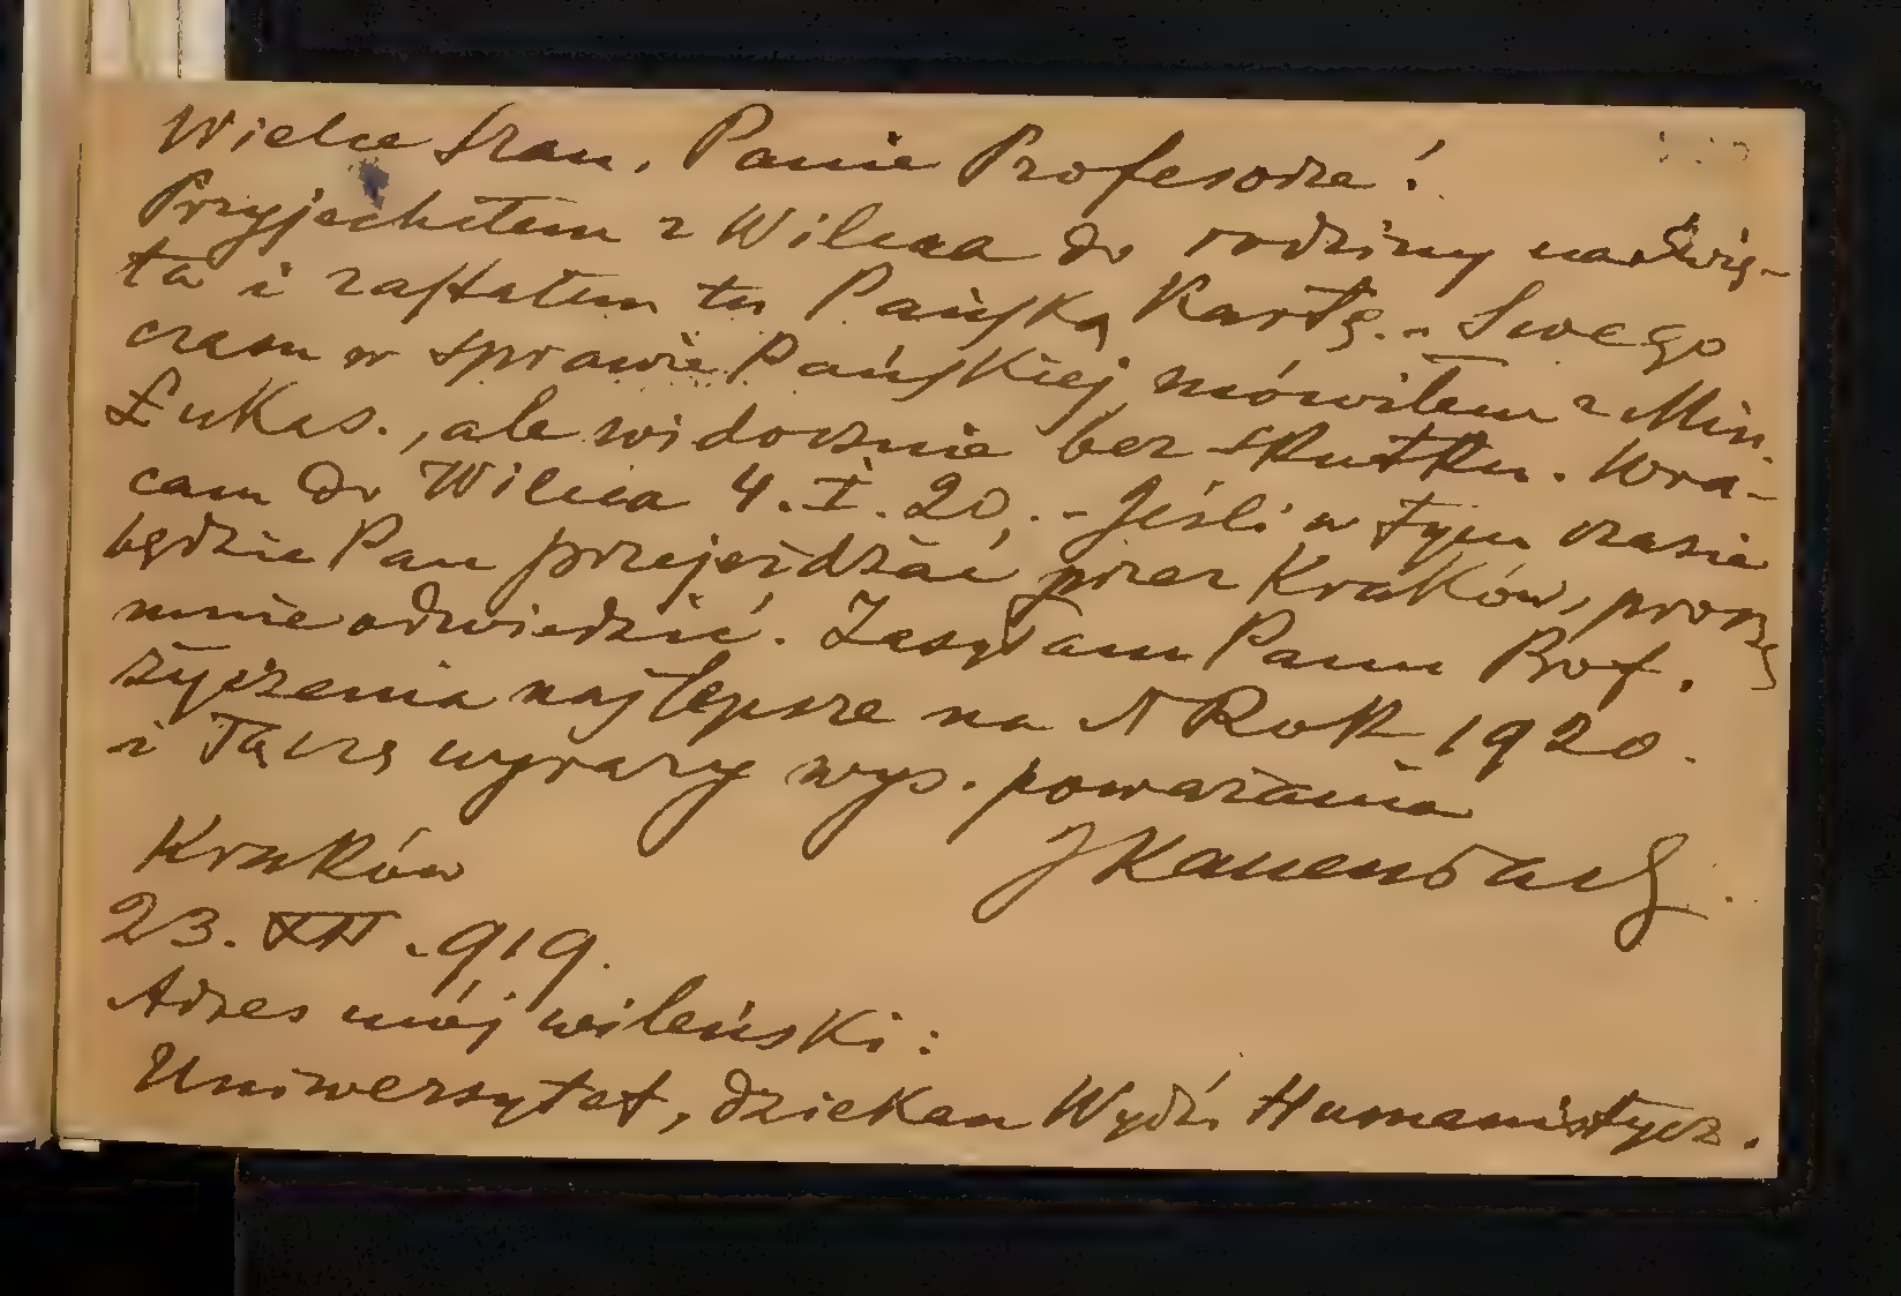 Wielce Szan. Panie Profesorze!
Przyjechałem z Wilna do rodziny na świę-
ta i zastałem tu Pańską Kartę. – Swego
czasu w sprawie Pańskiej mówiłem z Min.
Łukas., ale widocznie bez skutku. Wra-
cam do Wilna 4.I.20. – Jeśli w tym czasie
będzie Pan przejeżdżać przez Kraków, proszę
mnie odwiedzić. Zasyłam Panu Prof.
życzenia najlepsze na N Rok 1920.
i Łączę wyrazy wys. poważania
JKallenbach
Kraków
23.XII.919.
Adres mój wileński:
Uniwersytet, dziekan Wydz. Humanistycz.